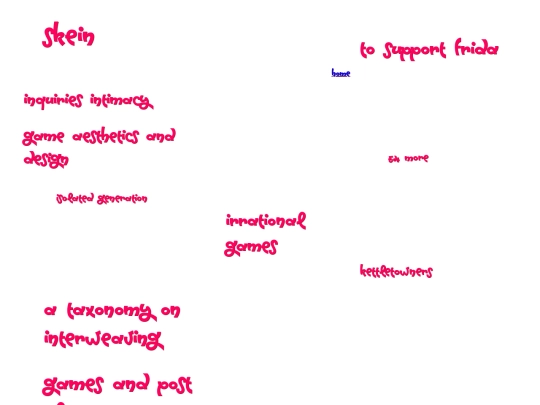 skein
to support frida
home
inquiries intimacy
game aesthetics and
design
54 more
isolated generation
irrational
games
kettletowners
a taxonomy on
interweaving
games and post